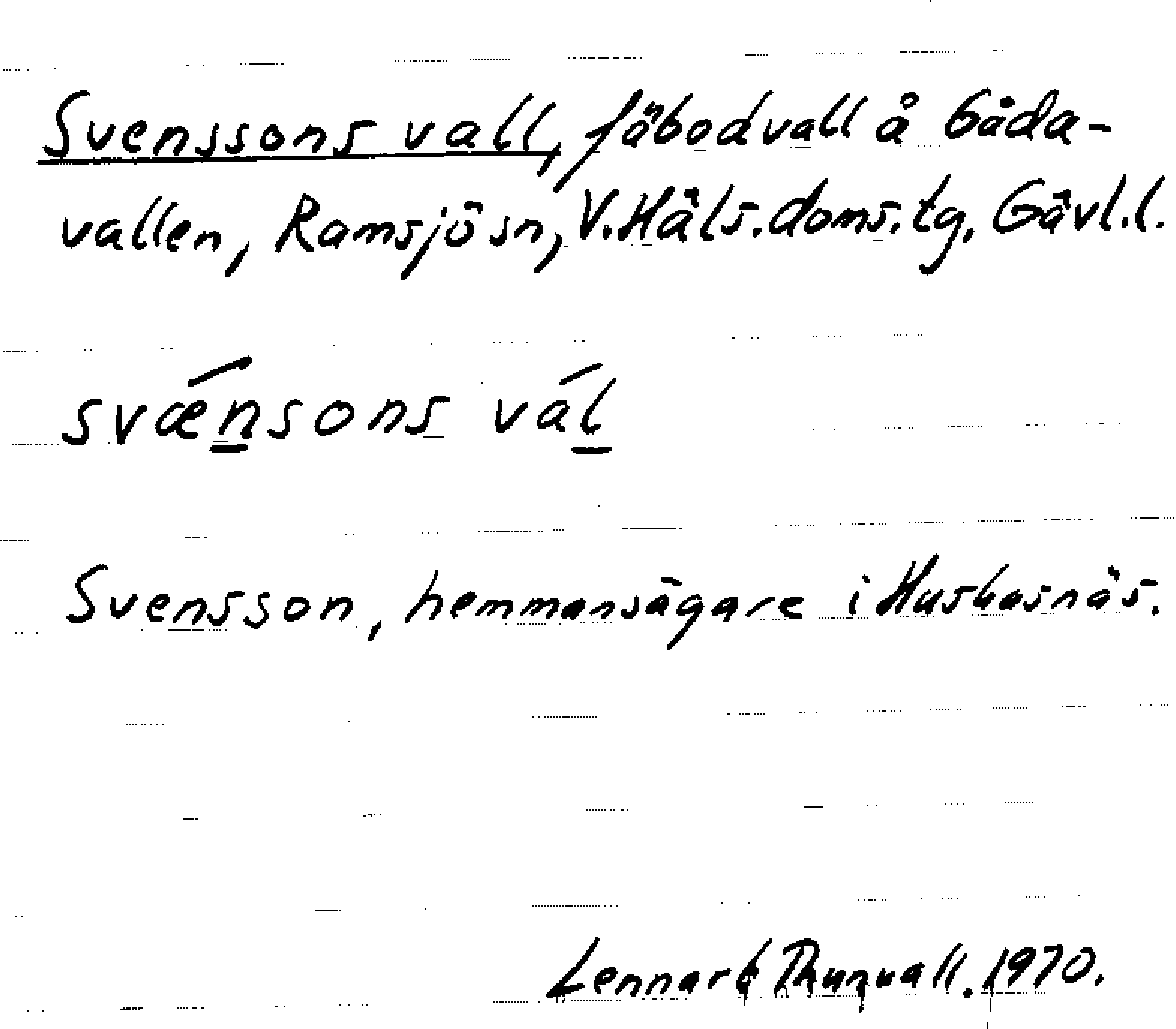 Svenssons vall, fäbodvall å Gåda-
vallen, Ramsjö sn, V. Häls. doms. tg, Gävl. l.
svǽn̲sons vál̲
Svensson, hemmansägare i Huskasnäs.
Lennart Thunvall. 1970.